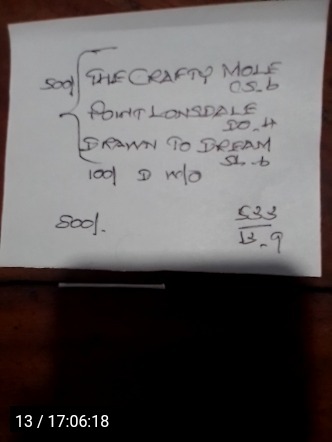 500/ THE CRAFTY MOLE
CS-6
POINT LONSDALE
DO-4
DRAWN TO DREAM
SL-6
100/ D W/O
800/-
533
13-9
13 / 17:06:18